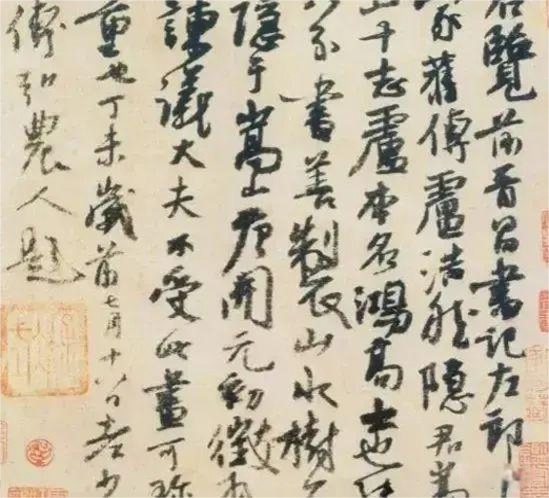 覽前晉昌書記左郎
家舊傳盧浩然隱君嵩
山十志盧本名鴻高士也能
八分書善製山水樹石
隱于嵩山唐開元初徵拜
諫議大夫不受此畫可珍
重也丁未歲前七月十八日老少
傅弘農人題